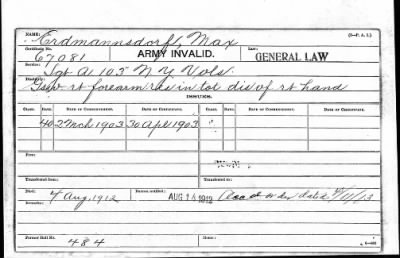 NAME: Erdmannsdorf, Max (3—P. A. I.)
Certificate No. 67081 ARMY INVALID. Law: GENERAL LAW
Service: Sgt A. 103 N Y Vols.
Disability: Gsw rt forearm res in tot dis of rt hand
CLASS. RATE. DATE OF COMMENCEMENT. DATE OF CERTIFICATE. CLASS. RATE. DATE OF COMMENCEMENT. DATE OF CERTIFICATE.
40 2 Mch 1903 30 Apl 1903
Transferred from: Transferred to:
Died: 4 Aug. 1912 AUG 1912 dated
Remarks:
Former Roll No. 484 Home: